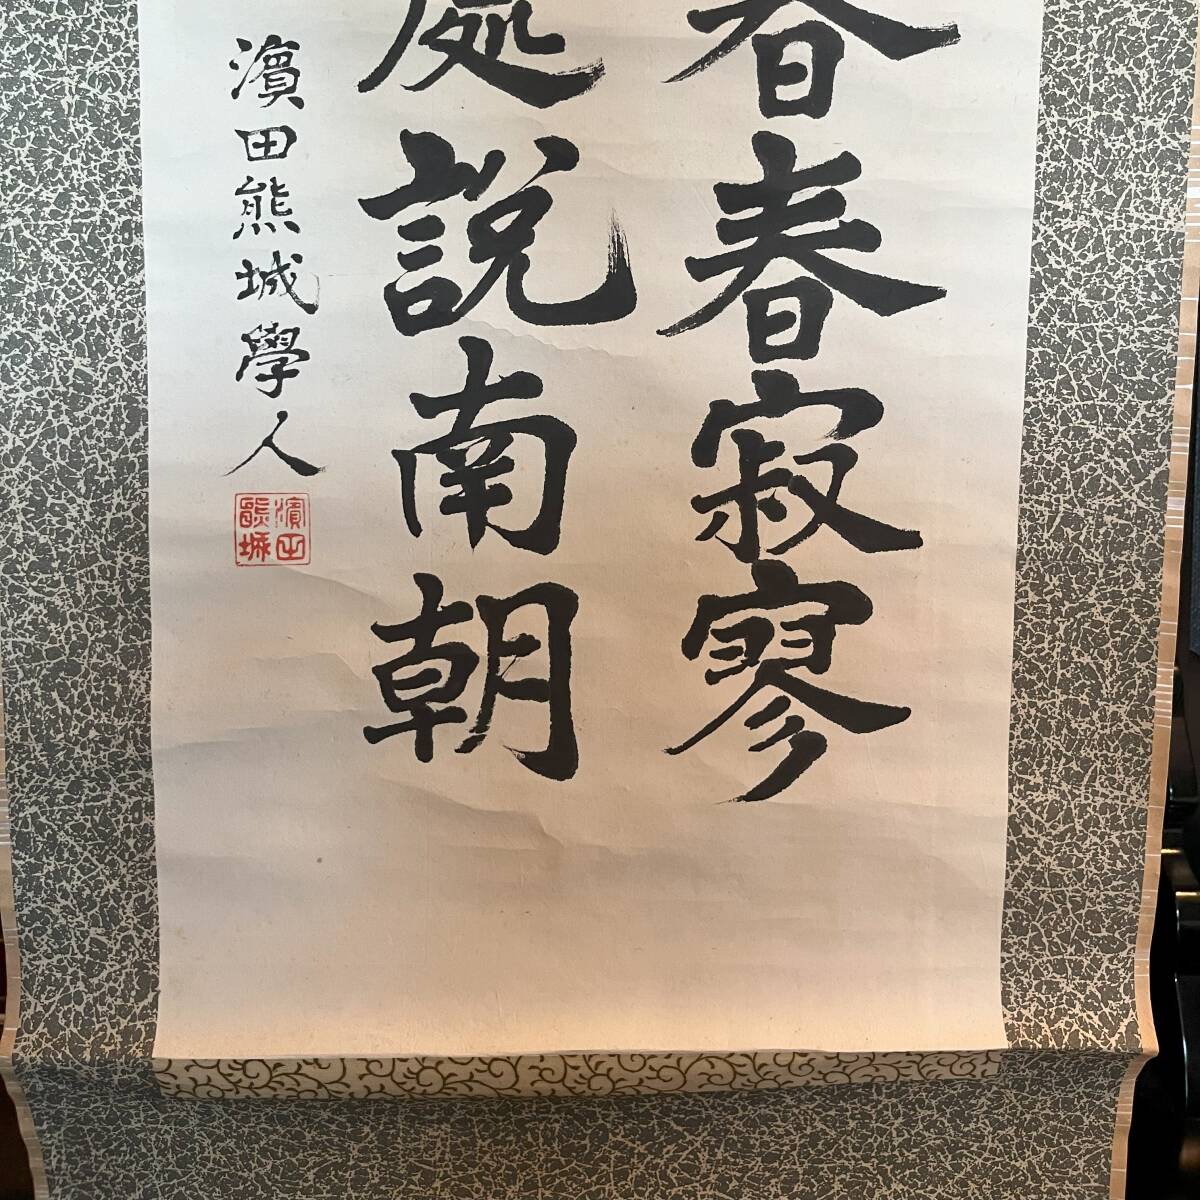 春春寂寥
處說南朝
濱田熊城學人
濱田
熊城